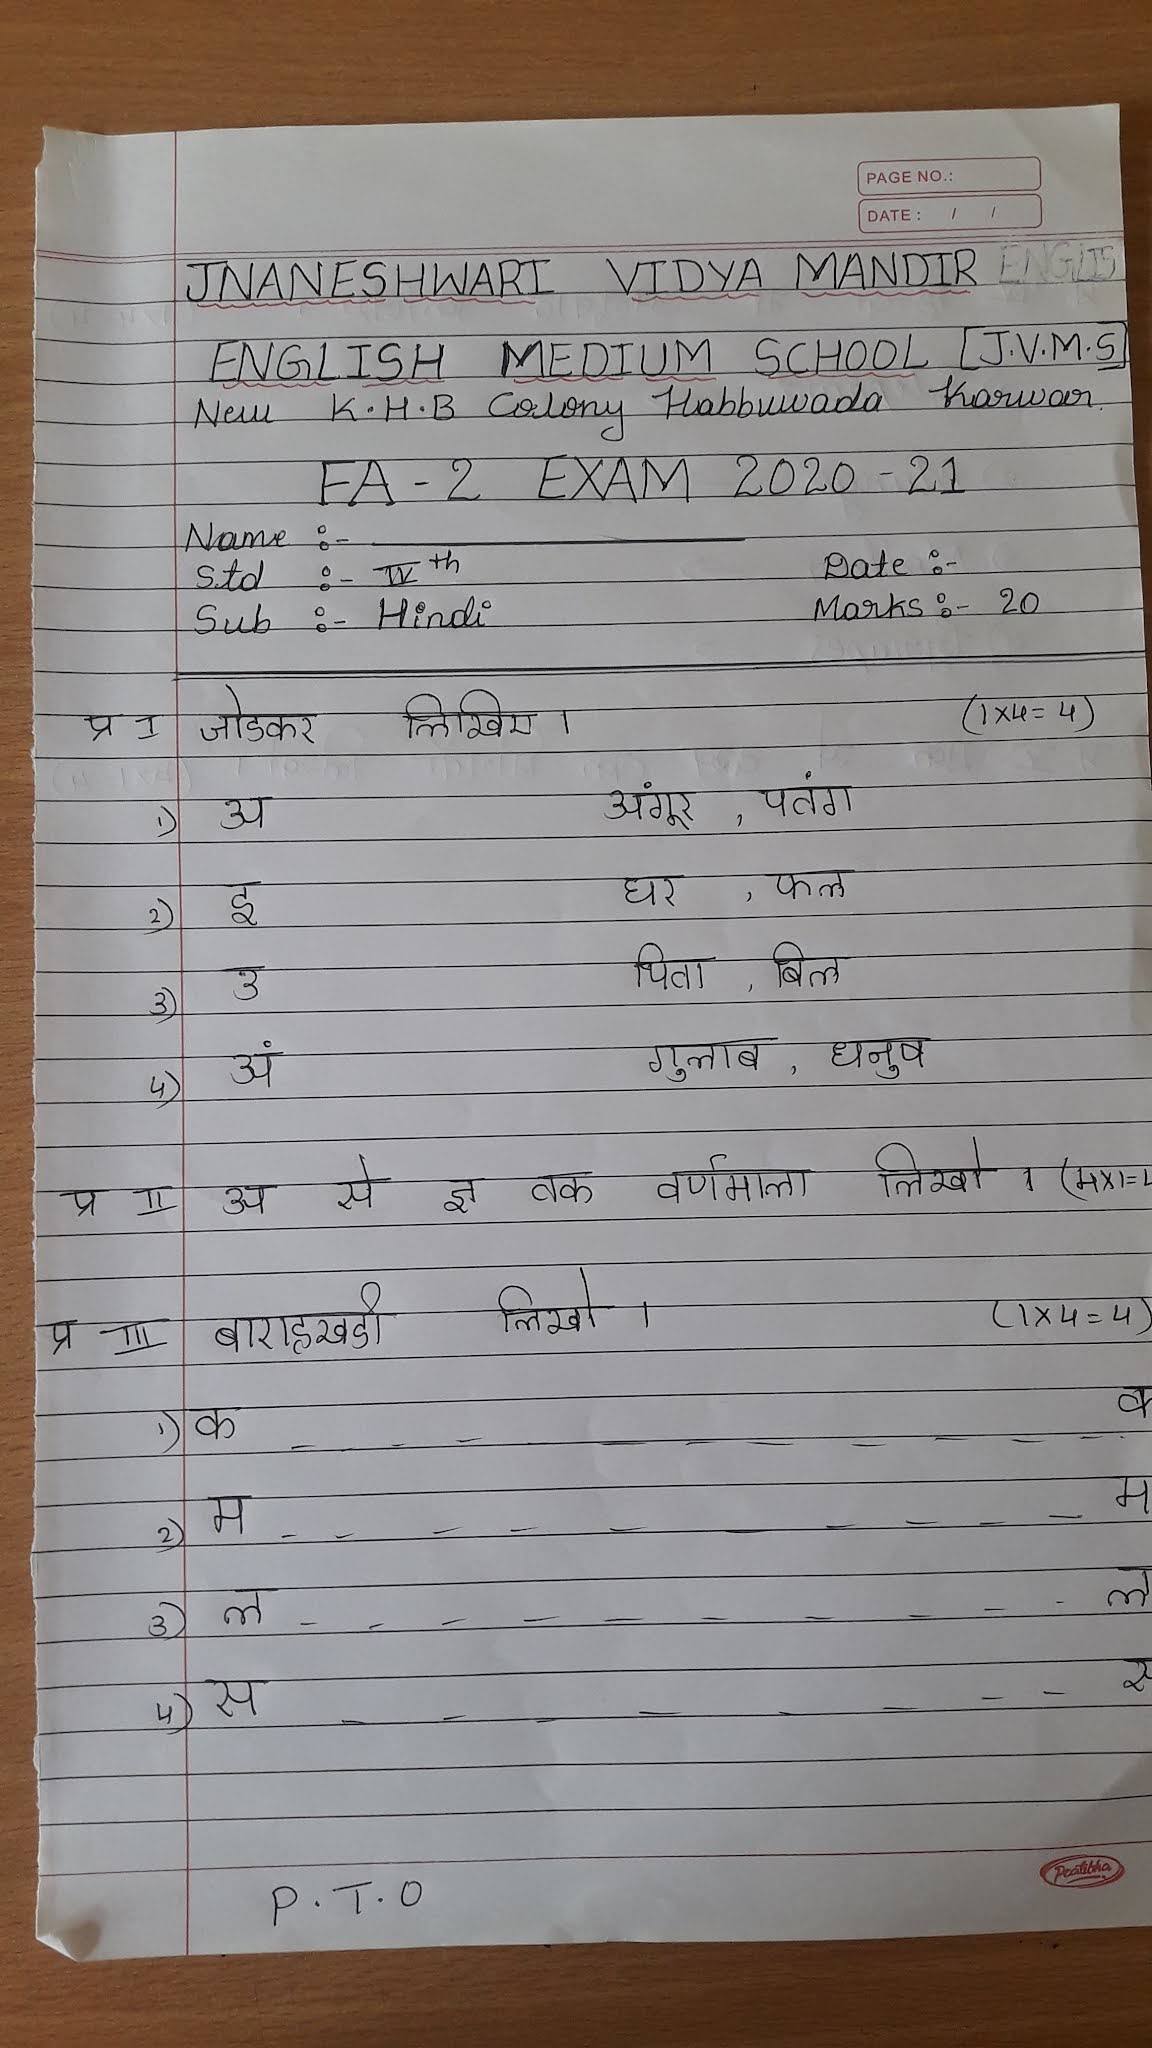 PAGE NO.:
DATE : / /
JNANESHWARI VIDYA MANDIR ENGLIS
ENGLISH MEDIUM SCHOOL [J.V.M.S]
New K.H.B Colony Habbuwada Karwar.
FA - 2 EXAM 2020 - 21
Name :- ____________
Std :- IVth Date :-
Sub :- Hindi Marks :- 20
प्र I जोडकर लिखिए । (1x4=4)
1) अ अंगूर , पतंग
2) इ घर , फल
3) उ पिता , बिल
4) अं गुलाब , धनुष
प्र II अ से ज्ञ तक वर्णमाला लिखो । (4x1=4
प्र III बाराहखडी लिखो । (1x4=4)
1) क _ _ _ _ _ _ _ _ _ _ क
2) म _ _ _ _ _ _ _ _ _ _ म
3) ल _ _ _ _ _ _ _ _ _ _ ल
4) स _ _ _ _ _ _ _ _ स
P.T.O
Pratibha